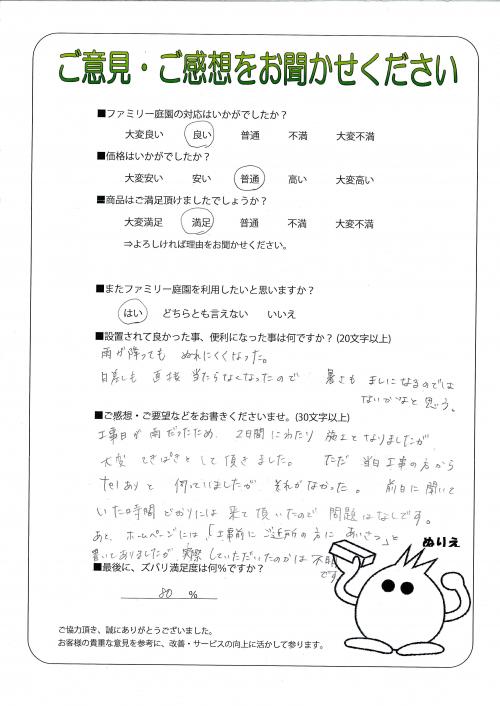 ご意見・ご感想をお聞かせください
■ファミリー庭園の対応はいかがでしたか？
大変良い 良い 普通 不満 大変不満
■価格はいかがでしたか？
大変安い 安い 普通 高い 大変高い
■商品はご満足頂けましたでしょうか？
大変満足 満足 普通 不満 大変不満
⇒よろしければ理由をお聞かせください。
■またファミリー庭園を利用したいと思いますか？
はい どちらとも言えない いいえ
■設置されて良かった事、便利になった事は何ですか？(20文字以上)
雨が降っても ぬれにくくなった。
日差しも 直接 当たらなくなったので 暑さも ましになるのでは
ないかなと 思う。
■ご感想・ご要望などをお書きくださいませ。(30文字以上)
工事日が 雨だったため、2日間にわたり 施工となりましたが
大変 てきぱきとして頂きました。 ただ 当日工事の方から
telありと 伺っていましたが それがなかった。 前日に聞いて
いた時間どおりには 来て頂いたので 問題はなしです。
あと、ホームページには、「工事前に ご近所の方に あいさつ」と
書いてありましたが 実際していただいたのかは 不明
です
■最後に、ズバリ満足度は何％ですか？
80 %
ぬりえ
ご協力頂き、誠にありがとうございました。
お客様の貴重な意見を参考に、改善・サービスの向上に活かして参ります。